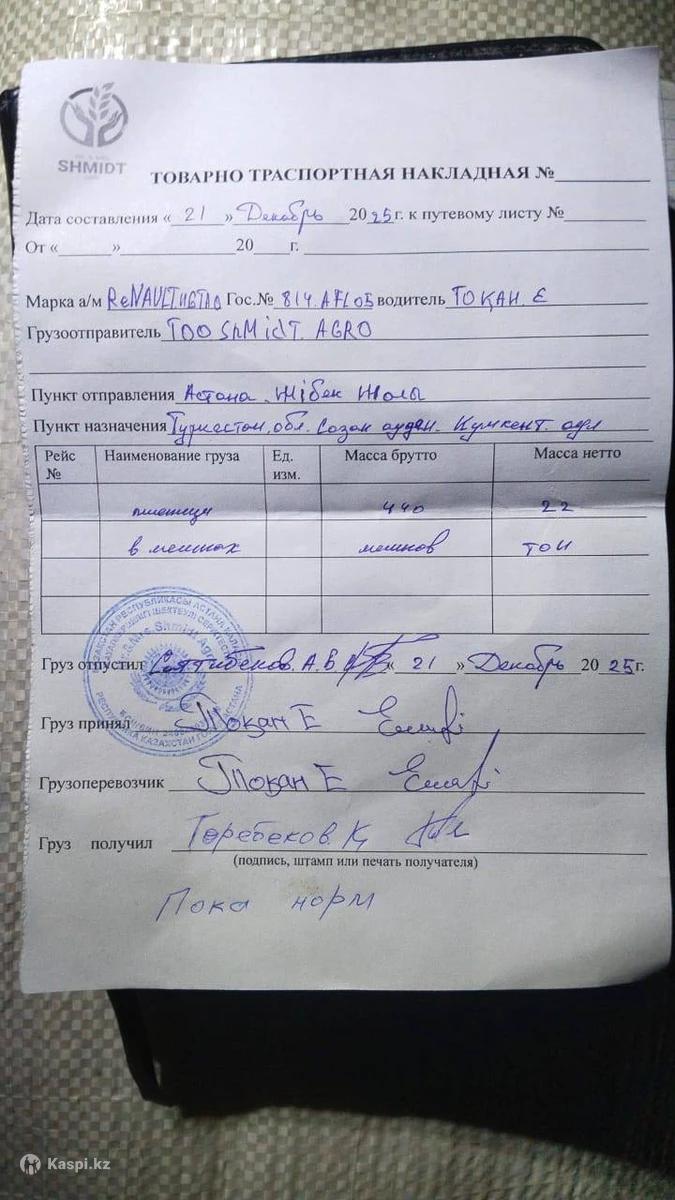 SHMIDT
ТОВАРНО ТРАСПОРТНАЯ НАКЛАДНАЯ №
Дата составления « 21 » Декабрь 2025г. к путевому листу №
От « » 20 г.
Марка а/м ReNAULT Гос.№ 814.AFL05 водитель ТОҚАН. Е
Грузоотправитель ТОО ShMidT. AGRO
Пункт отправления Астана. Жібек Жолы
Пункт назначения Туркестан. обл. Созақ аудан. Кумкент. аул
Рейс № Наименование груза Ед. изм. Масса брутто Масса нетто
пшеници 440 22
в мешках мешков тон
Груз отпустил Саттибеков. А. В « 21 » Декабрь 2025г.
Груз принял Тоқан Е
Грузоперевозчик Тоқан Е
Груз получил Торебеков. К
(подпись, штамп или печать получателя)
Пока норм
Kaspi.kz